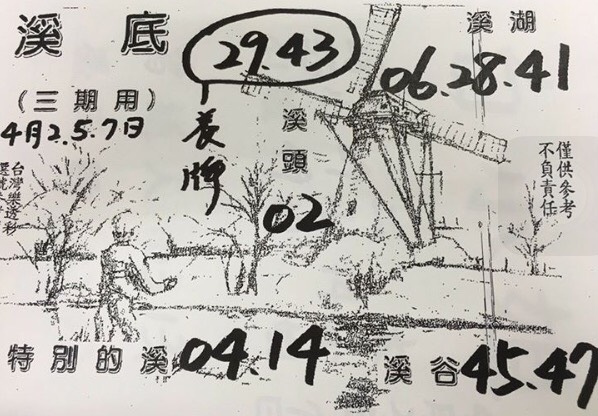 溪底
29.43
溪湖
06.28.41
(三期用)
4月2.5.7日
養牌
溪頭
02
僅供參考
不負責任
台灣樂透彩
特別的溪04.14
溪谷45.47